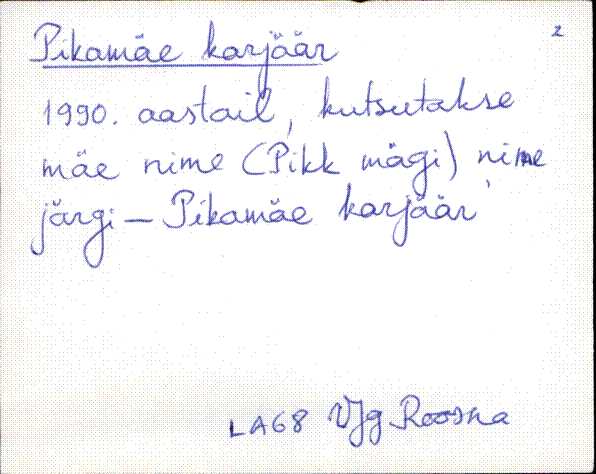 Pikamäe karjäär
2
1990. aastail, kutsutakse
mäe nime (Pikk mägi) nime
järgi — Pikamäe karjäär
LA68 VJg Roosna